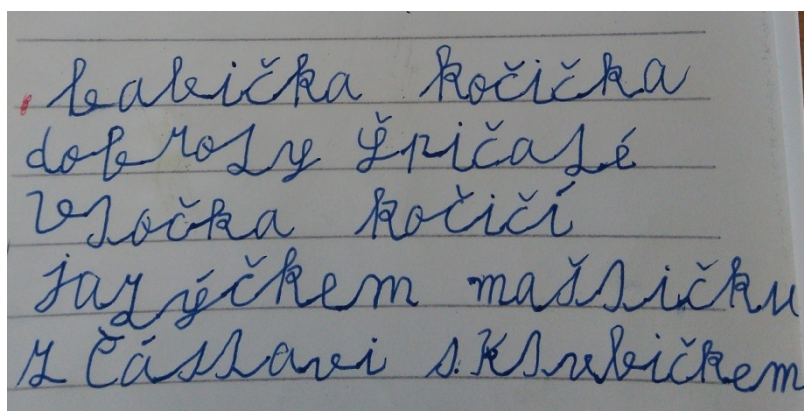 babička kočička
dobroty špičaté
Vločka kočičí
jazýčkem mašličku
z Čáslavi s. Klubičkem